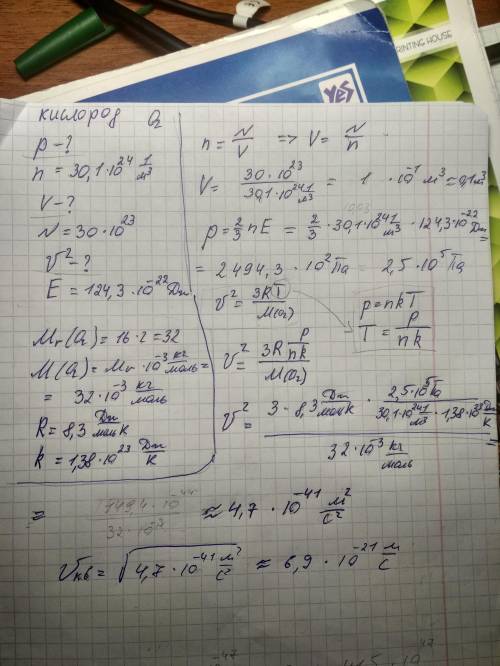 YES
RINTING HOUSE
кислород O₂
p - ?
n = 30,1·10²⁴ 1/м³
V - ?
N = 30·10²³
v² - ?
E = 124,3·10⁻²² Дж
Mr(O₂) = 16·2 = 32
M(O₂) = Mr·10⁻³ кг/моль =
= 32·10⁻³ кг/моль
R = 8,3 Дж/моль K
k = 1,38·10²³ Дж/K
n = N/V => V = N/n
V = 30·10²³ / 30,1·10²⁴ 1/м³ = 1·10⁻¹ м³ = 0,1 м³
p = 2/3 nE = 2/3 · 30,1·10²⁴ 1/м³ · 124,3·10⁻²² Дж =
= 2494,3·10² Па = 2,5·10⁵ Па
v² = 3RT / M(O₂)
p = nkT
T = p/nk
v² = 3R p/nk / M(O₂)
v² = 3·8,3 Дж/моль K · 2,5·10⁵ Па / 30,1·10²⁴ 1/м³ · 1,38·10²³ Дж/K / 32·10⁻³ кг/моль =
= ≈ 4,7·10⁻⁴¹ м²/с²
vкв = √4,7·10⁻⁴¹ м²/с² ≈ 6,9·10⁻²¹ м/с